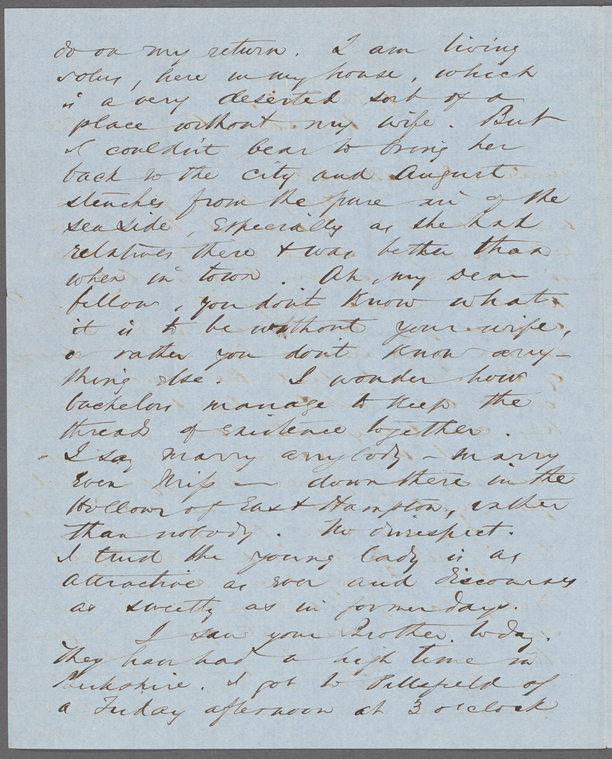 do on my return. I am living
solus, here in my house, which
is a very deserted sort of a
place without my wife. But
I couldn't bear to bring her
back to the city and August
stenches from the pure air of the
sea side, especially as she had
relatives there & was better than
when in town. Ah, my dear
fellow, you don't know what
it is to be without your wife,
or rather you don't know any-
thing else. I wonder how
bachelors manage to keep the
thread of existence together.
I say marry anybody - marry
even Miss — down there in the
Hollow of East Hampton, rather
than nobody. No disrespect.
I trust the young lady is as
attractive as ever and discourses
as sweetly as in former days.
I saw your Brother. today.
They have had a high time in
Berkshire. I got to Pittsfield of
a Friday afternoon at 3 o'clock